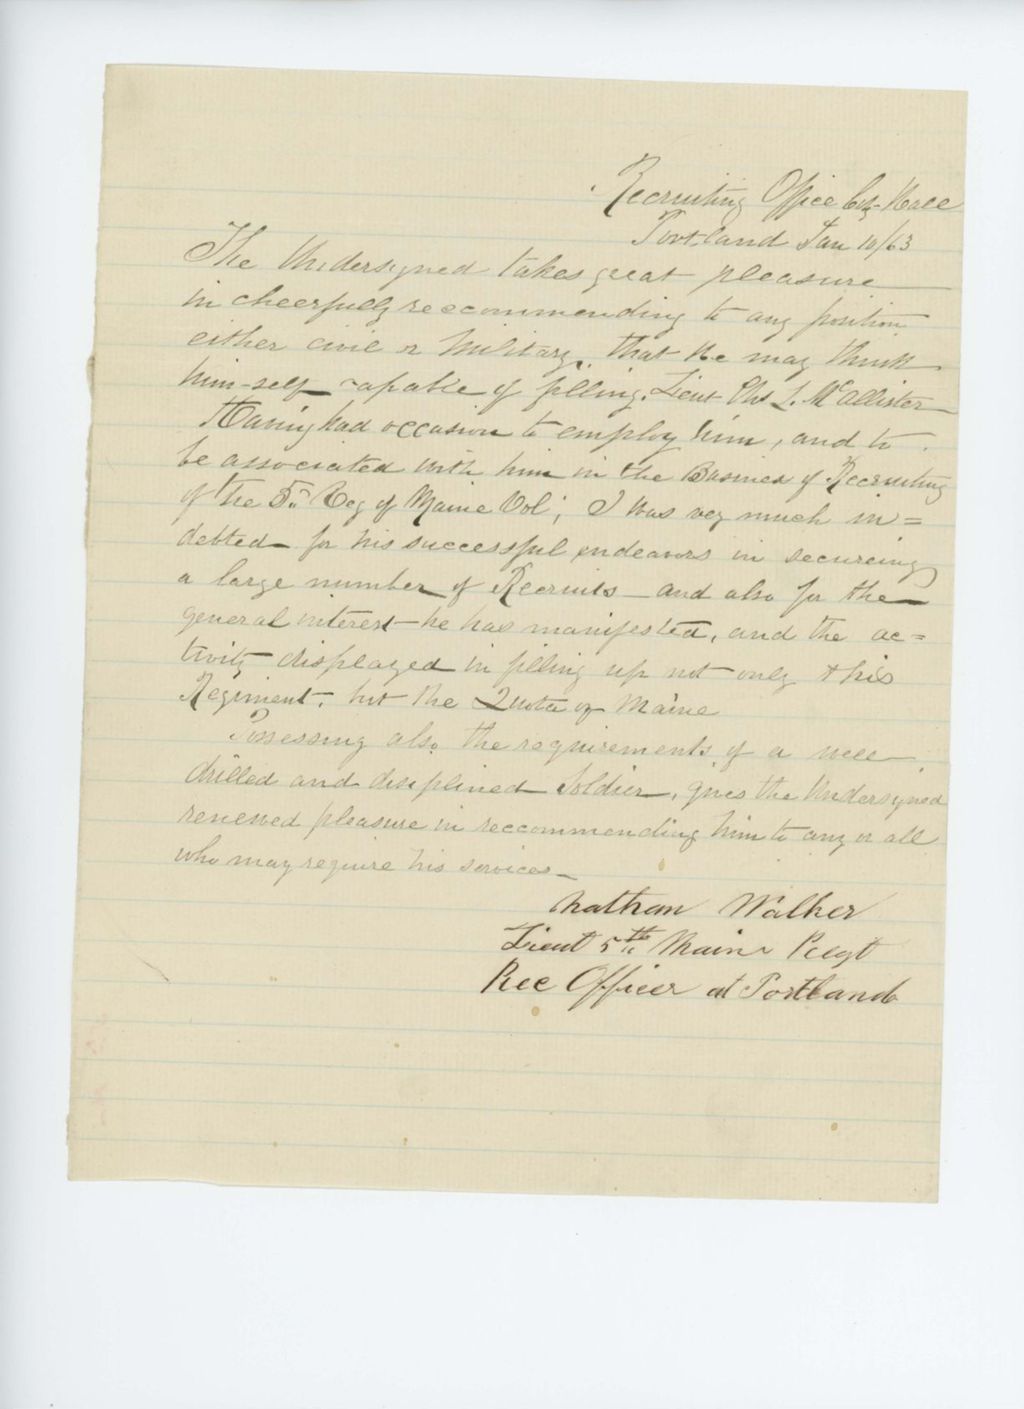 Recruiting Office City Hall
Portland Jan 10/63
The Undersigned takes great pleasure
in cheerfully reccommending to any position
either civil or Military, that he may think
him-self capable of filling. Lieut Chs L. McAllister
Having had occasion to employ him, and to
be associated with him in the Business of Recruiting
of the 5th Reg of Maine Vol; I was very much in=
debted for his successful endeavors in secureing
a large number of Recruits and also for the
general interest he has manifested, and the ac=
tivity displayed in filling up not only this
Regiment, but the Quota of Maine
Posessing also the requirements of a well
drilled and disciplined Soldier, gives the Undersigned
renewed pleasure in reccommending him to any or all
who may require his services
Nathan Walker
Lieut 5th Maine Regt
Rec Officer at Portland